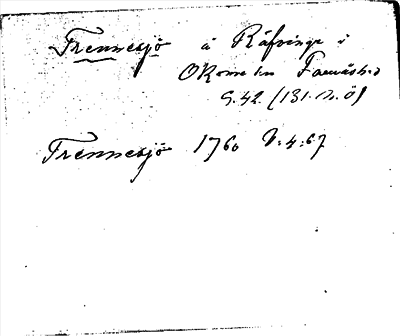 Trennesjö å Räfvinge i
Okome sn Fauråsh:d
G. 42. (131. N. Ö)
Trennesjö 1760 V: 4: 67